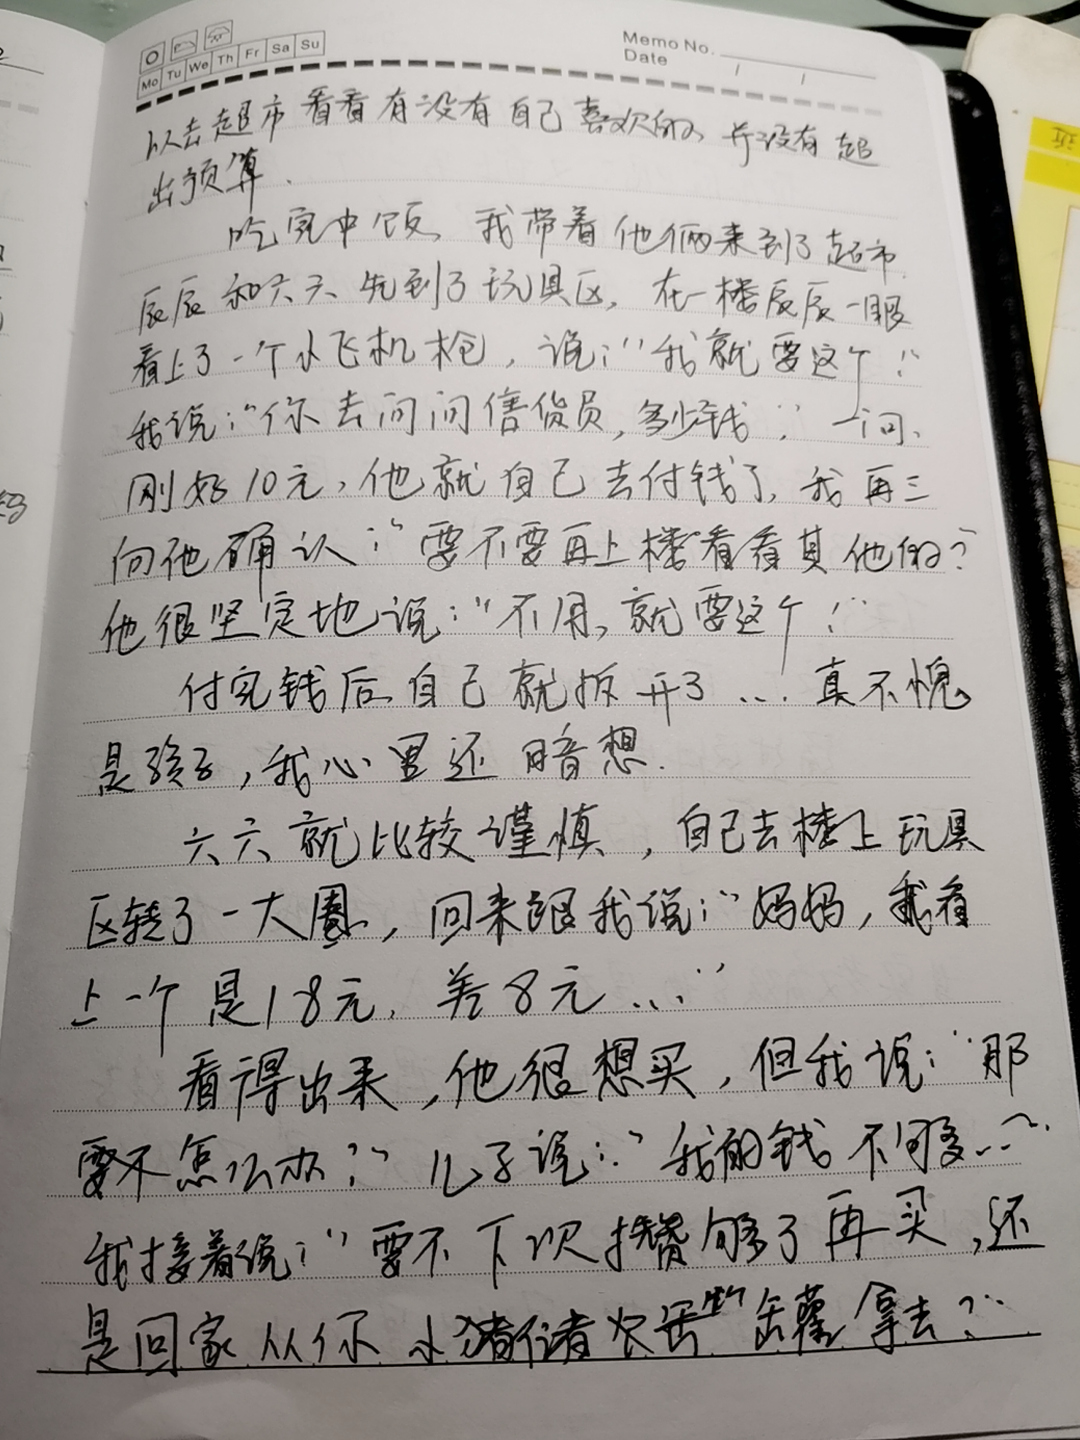 Memo No.
Mo Tu We Th Fr Sa Su
Date / /
以去超市看看有没有自己喜欢的,并没有超
出预算.
吃完中饭,我带着他俩来到了超市.
辰辰和六六先到了玩具区,在一楼辰辰一眼
看上了一个小飞机枪,说:"我就要这个!"
我说:"你去问问售货员,多少钱." 一问、
刚好10元,他就自己去付钱了,我再三
向他确认:"要不要再上楼看看其他的?
他很坚定地说:"不用,就要这个!"
付完钱后自己就拆开了... 真不愧
是孩子,我心里还暗想.
六六就比较谨慎,自己去楼上玩具
区转了一大圈,回来跟我说:"妈妈,我看
上一个是18元,差8元..."
看得出来,他很想买,但我说:"那
要不怎么办?" 儿子说:"我的钱不够..."
我接着说:"要不下次攒够了再买,还
是回家从你小猪 拿去?"